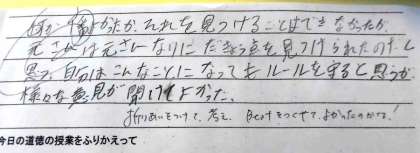 何が悪かったか、それを見つけることはできなかったが、
元さんは元さんなりにだきょう点を見つけられたのだと
思う。自分はこんなことになってもルールを守ると思うが
様々な意見が聞けてよかった。
折り合いをつけて、考え、Bestをつくせて、よかったのかな!
今日の道徳の授業をふりかえって